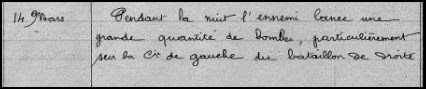 14 Mars Pendant la nuit l'ennemi lance une
grande quantité de bombes, particulièrement
sur la Cie de gauche du bataillon de droite